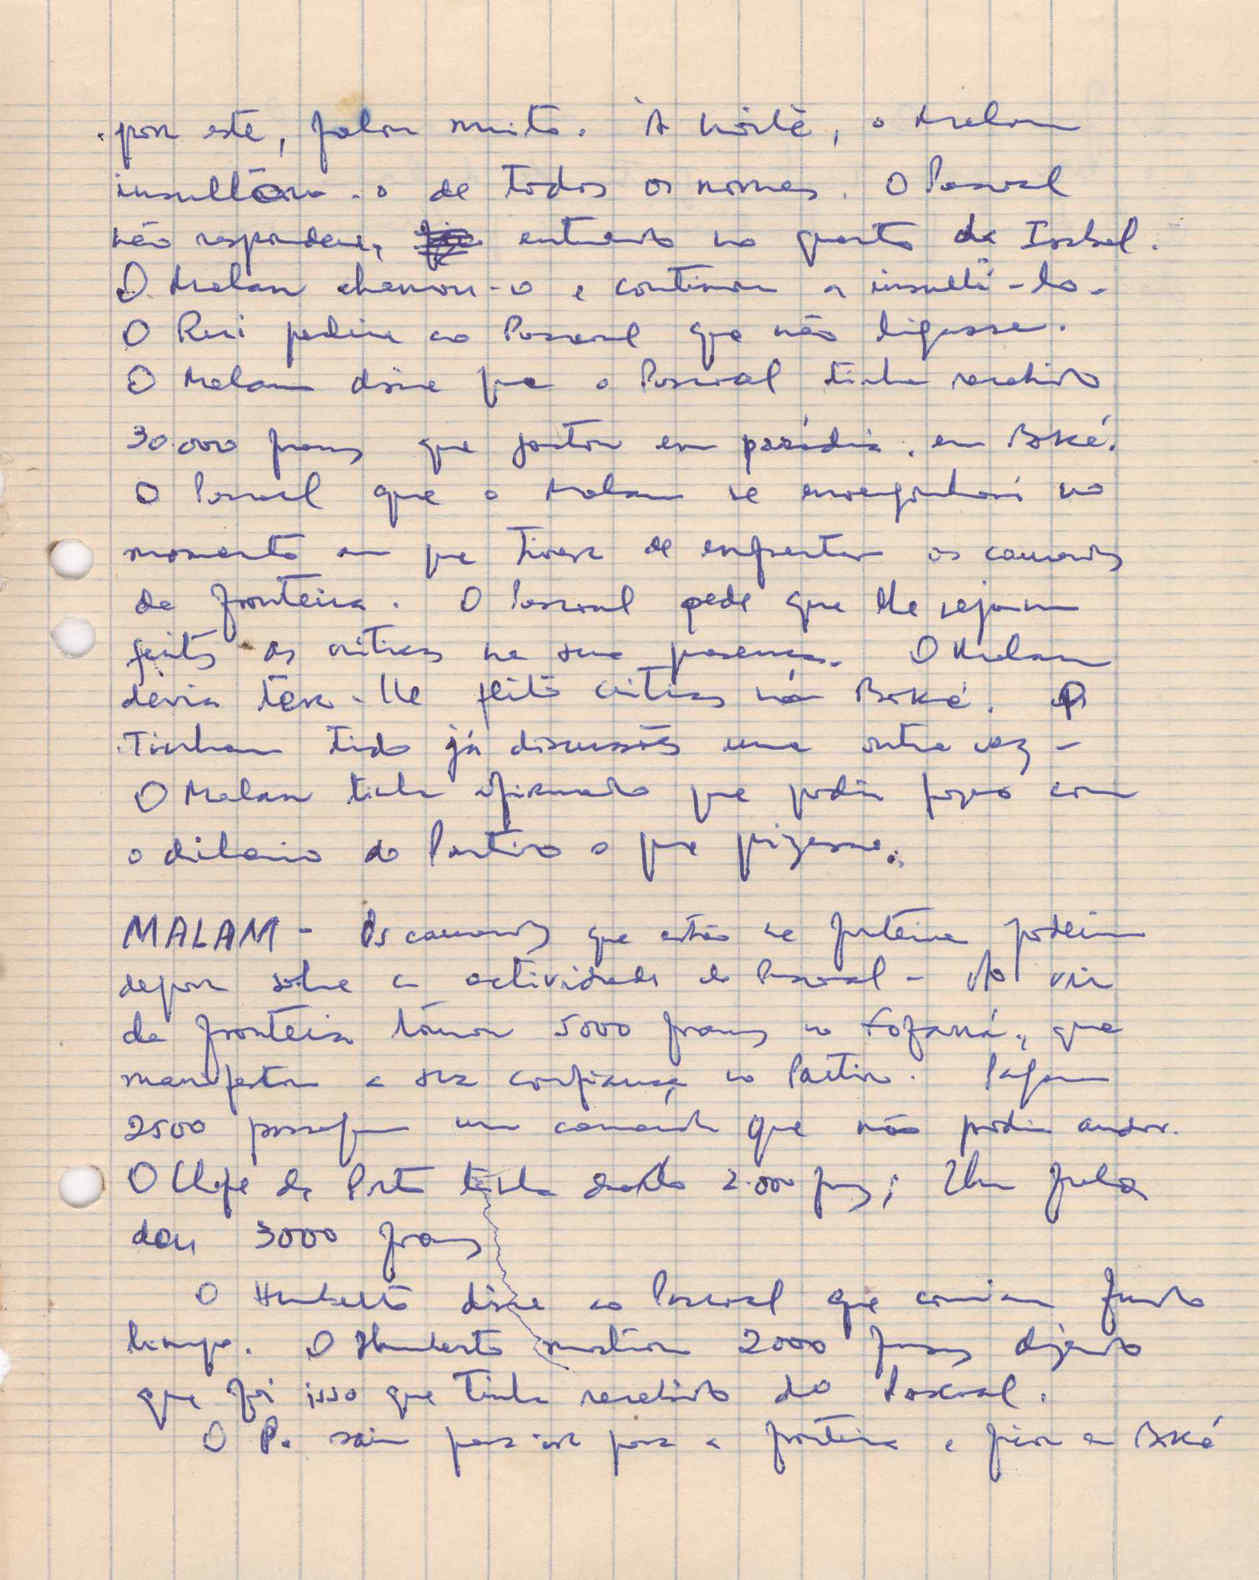 por este, falou muito. À noite, o Malam
insultára-o de todos os nomes. O Pascoal
não respondera, entrando no quarto da Isabel.
O Malam chamou-o e continuou a insultá-lo.
O Rui pedira ao Pascoal que não ligasse.
O Malam disse que o Pascoal tinha recebido
30.000 francos que gastou em paródia, em Boké.
O Pascoal que o Malam se envergonhará no
momento em que tiver de enfrentar os camaradas
da fronteira. O Pascoal pede que lhe sejam
feitas as críticas na sua presença. O Malam
devia ter-lhe feito críticas lá Boké.
Tinham tido já discussões uma outra vez -
O Malam tinha afirmado que podia fazer com
o dinheiro do Partido o que quizesse.
MALAM - Os camaradas que estão na fronteira podem
depor sobre a actividade do Pascoal - Ao vir
da fronteira tomou 5000 francos ao Fofaná, que
manifestou a sua confiança no Partido. Pagou
2500 passagem um camarada que não podia andar.
O Chefe de Posto tinha dado 2.000 francos; Um fula
deu 3000 francos
O Humberto disse ao Pascoal que comiam
tempo. O Humberto mostrou 2000 francos dizendo
que foi isso que tinha recebido do Pascoal.
O P. saiu para ir para a fronteira e ficou em Boké